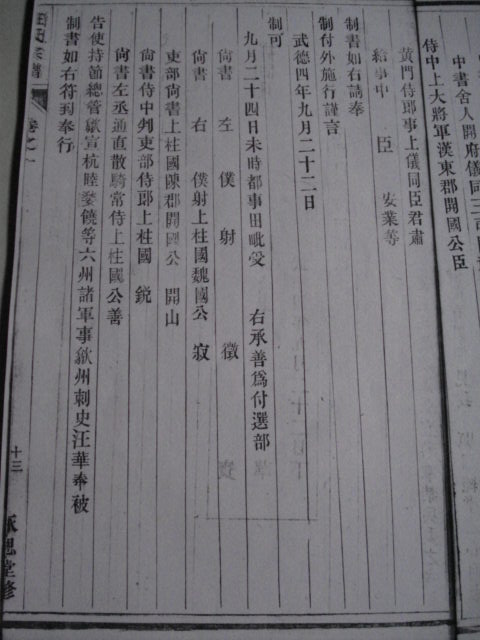 中書舍人開府儀同三司
侍中上大將軍漢東郡開國公臣
黃門侍郎事上儀同臣君肅
給事中 臣 安業等
制書如右請奉
制付外施行謹言
武德四年九月二十二日
制可
九月二十四日未時都事田毗受 右承善爲付選部
尙書左僕射 徵
尙書右僕射上柱國魏國公 寂
吏部尙書上柱國陳郡開國公 開山
尙書侍中判吏部侍郎上柱國 銳
尙書左丞通直散騎常侍上柱國公善
告使持節總管歙宣杭睦婺饒等六州諸軍事歙州刺史汪華奉被
制書如右符到奉行
汪氏宗譜
卷之一
十三
承思堂修